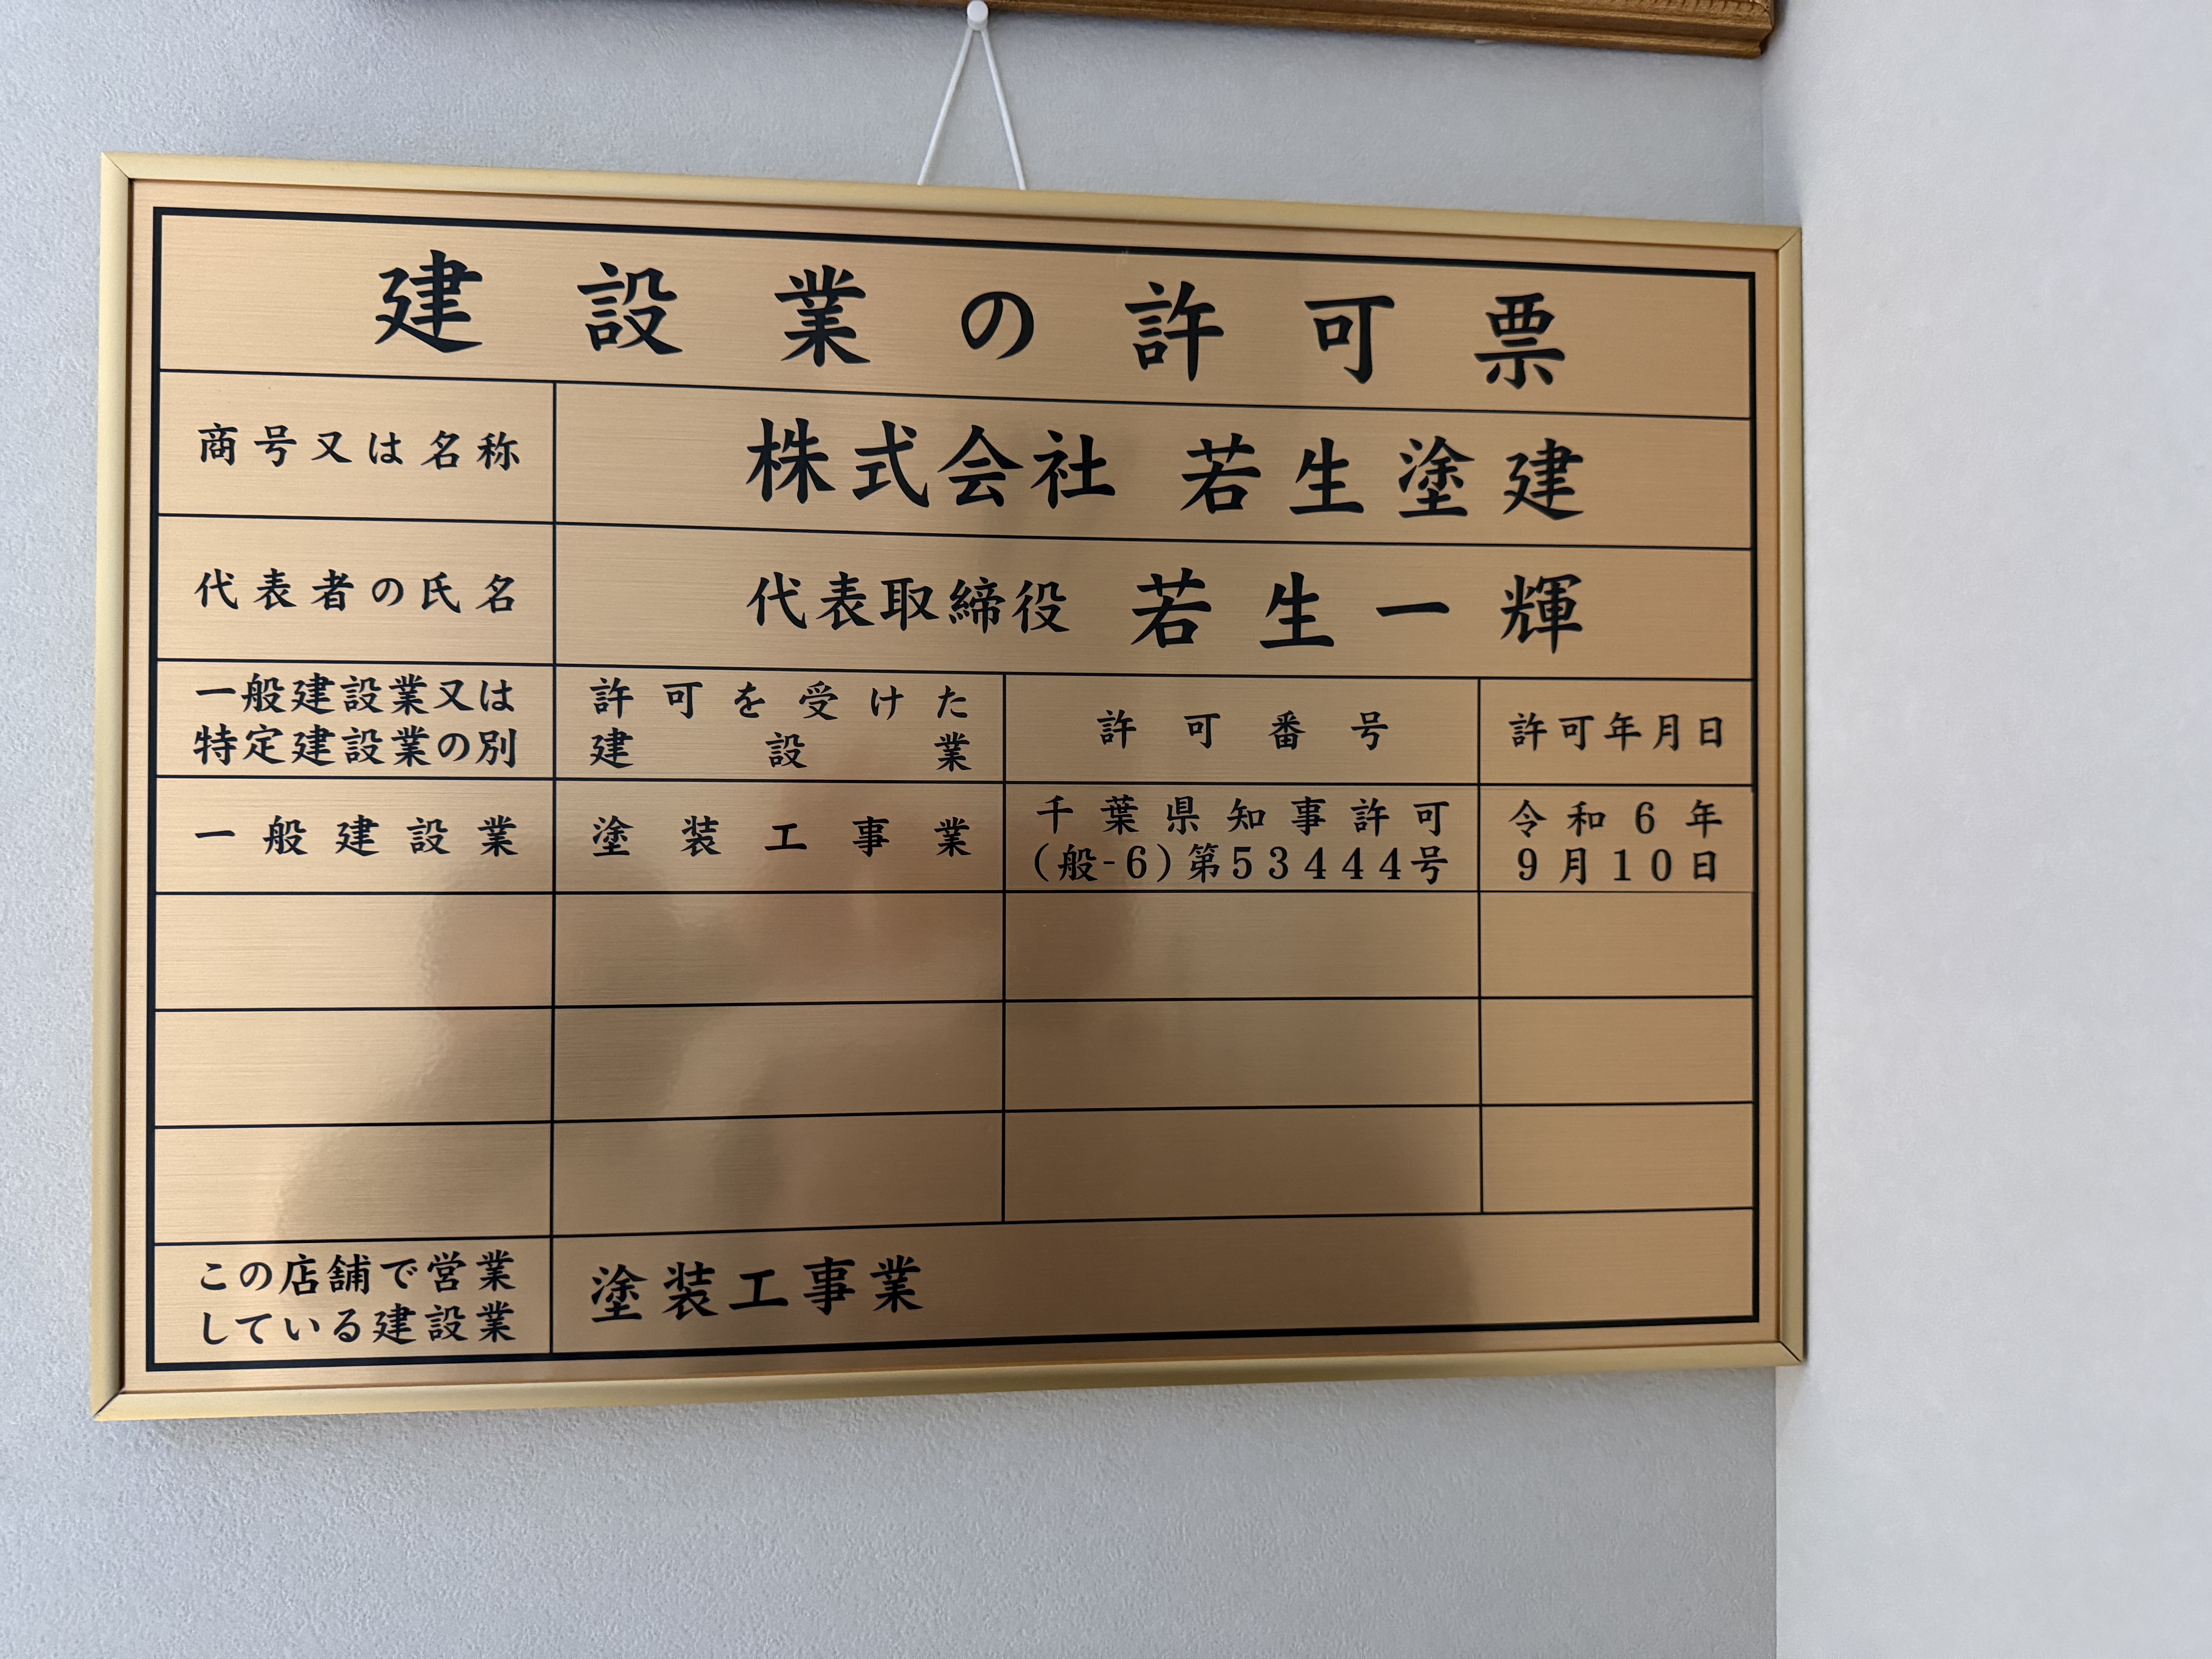 建設業の許可票
商号又は名称
株式会社 若生塗建
代表者の氏名
代表取締役 若生一輝
一般建設業又は
特定建設業の別
許可を受けた
建設業
許可番号
許可年月日
一般建設業
塗装工事業
千葉県知事許可
(般-6)第53444号
令和6年
9月10日
この店舗で営業
している建設業
塗装工事業